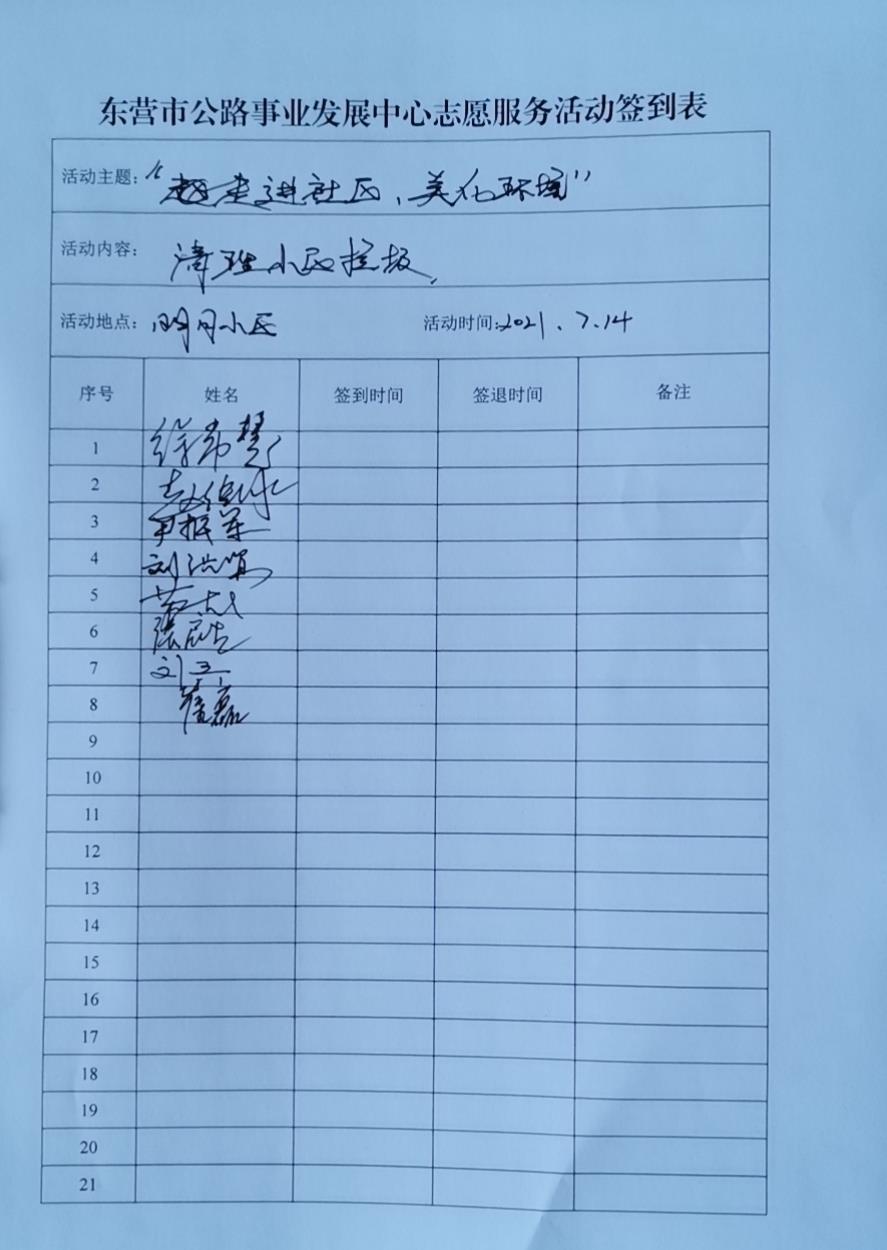 东营市公路事业发展中心志愿服务活动签到表
活动主题:“走进社区、美化环境”
活动内容: 清理小区垃圾
活动地点: 明月小区 活动时间:2021.7.14
序号 姓名 签到时间 签退时间 备注
1 徐希慧
2
3 尹振军
4
5
6
7 刘卫
8 崔磊
9
10
11
12
13
14
15
16
17
18
19
20
21